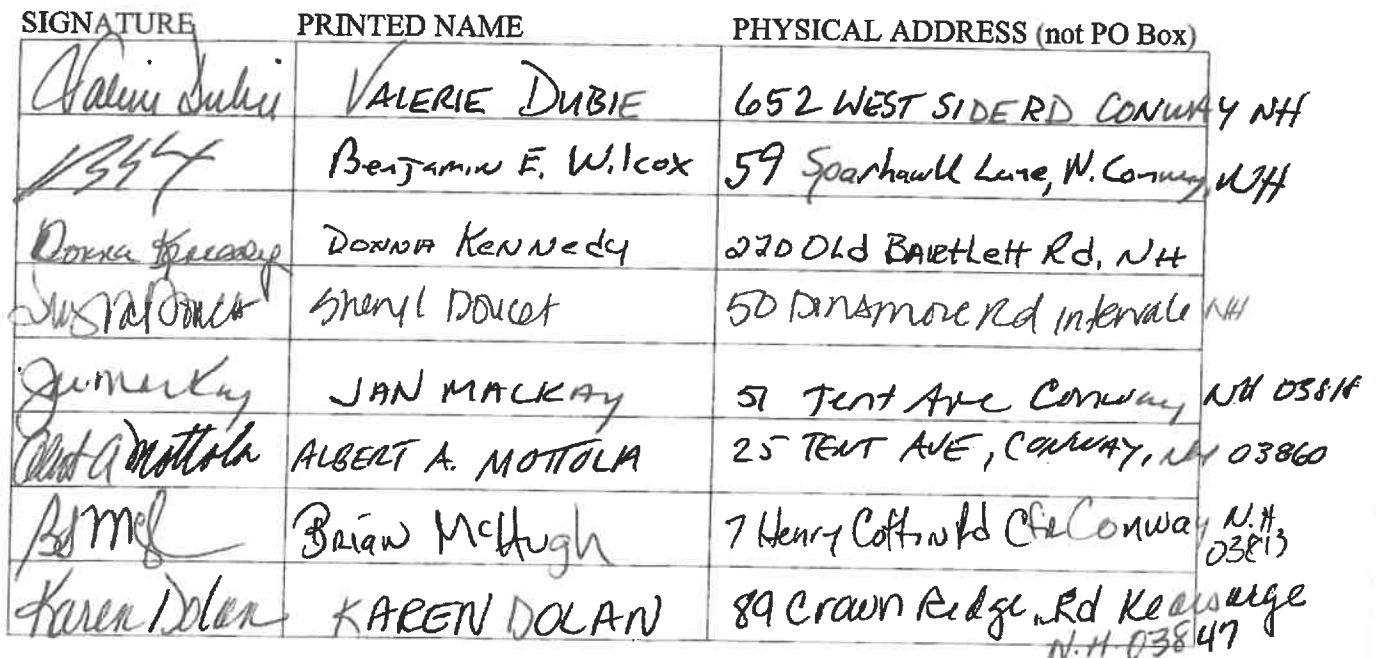 SIGNATURE PRINTED NAME PHYSICAL ADDRESS (not PO Box)
Valerie Dubie VALERIE DUBIE 652 WEST SIDE RD CONWAY NH
Benjamin E. Wilcox 59 Sparhawk Lane, N. Conway, NH
Donna Kennedy DONNA KENNEDY 220 Old Bartlett Rd, NH
Sheryl Doucet 50 Dinsmore Rd Intervale NH
Jan Mackay JAN MACKAY 51 Tent Ave Conway NH 03818
Albert A Mottola ALBERT A. MOTTOLA 25 TENT AVE, CONWAY, NH 03860
Brian McHugh 7 Henry Coffin Rd Ctr Conway N.H.
03813
Karen Dolan KAREN DOLAN 89 Crown Ridge Rd Kearsarge
N.H. 03847